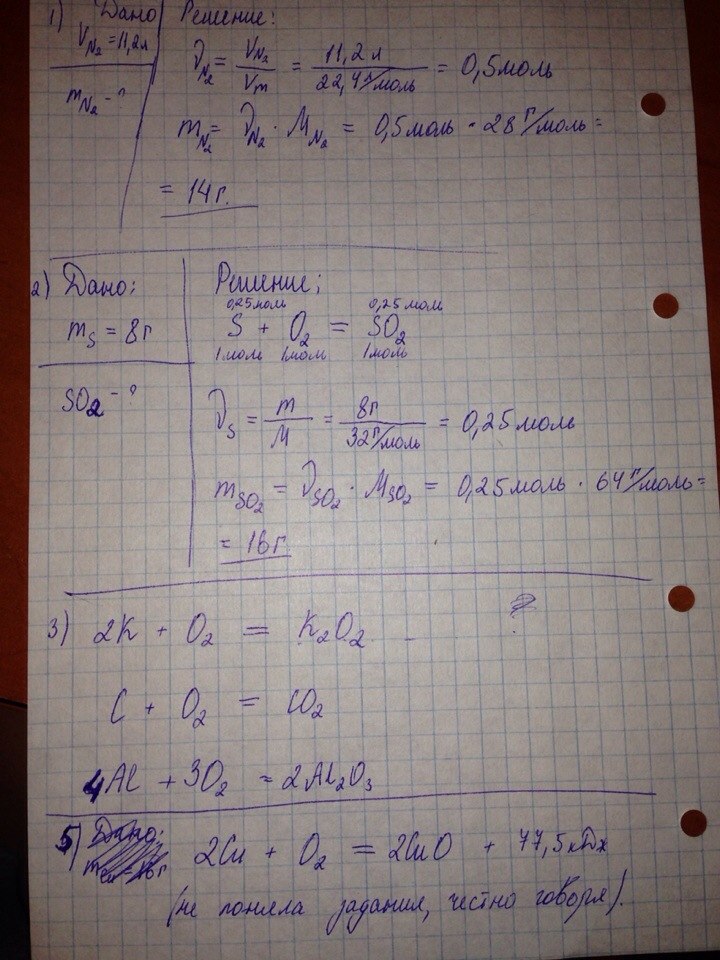 1) Дано
V_N₂ = 11,2л
m_N₂ - ?
Решение:
ν_N₂ = V_N₂ / V_m = 11,2 л / 22,4 л/моль = 0,5 моль
m_N₂ = ν_N₂ · M_N₂ = 0,5 моль · 28 г/моль =
= 14 г.
2) Дано:
m_S = 8г
SO₂ - ?
Решение;
0,25 моль 0,25 моль
S + O₂ = SO₂
1 моль 1 моль 1 моль
ν_S = m / M = 8г / 32 г/моль = 0,25 моль
m_SO₂ = ν_SO₂ · M_SO₂ = 0,25 моль · 64 г/моль =
= 16 г.
3) 2K + O₂ = K₂O₂
C + O₂ = CO₂
4Al + 3O₂ = 2Al₂O₃
5) 2Cu + O₂ = 2CuO + 77,5 кДж
(не поняла задания, честно говоря).